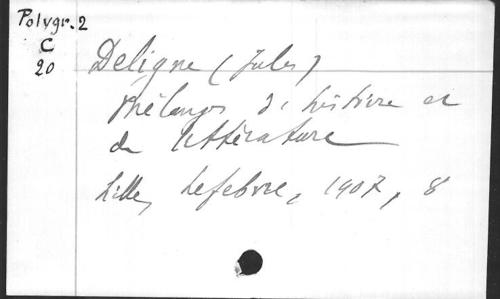 Polygr. 2
C
20
Deligne (Jules)
Mélanges d'histoire et
de littérature
Lille, Lefebvre, 1907, 8°